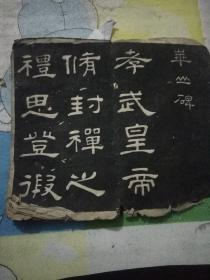 華山碑
孝武皇帝
脩封禪之
禮思登徦